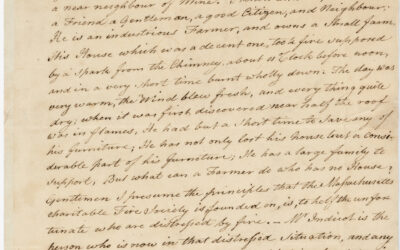 a near neighbour of mine.
a Friend a Gentleman, a good Citizen, and Neighbour;
He is an industrious Farmer, and owns a Small farm
His House which was a decent one, took fire supposed
by a Spark from the Chimney, about 11 o'Clock before noon,
and in a very short time burnt wholly down. The day was
very warm, the Wind blew fresh, and every thing quite
dry; when it was first discovered near half the roof
was in flames, He had but a Short time to Save any of
his furniture; He has not only lost his house but a consi-
derable part of his furneture; He has a large family to
Support, But what can a Farmer do who has no House,
Gentlemen I presume the principles that the Massachusetts
charitable Fire Society is founded on, is, to help the unfor-
tunate who are distressed by fire, — Mr Indicot is the
person who is now in that distressed Situation, and any